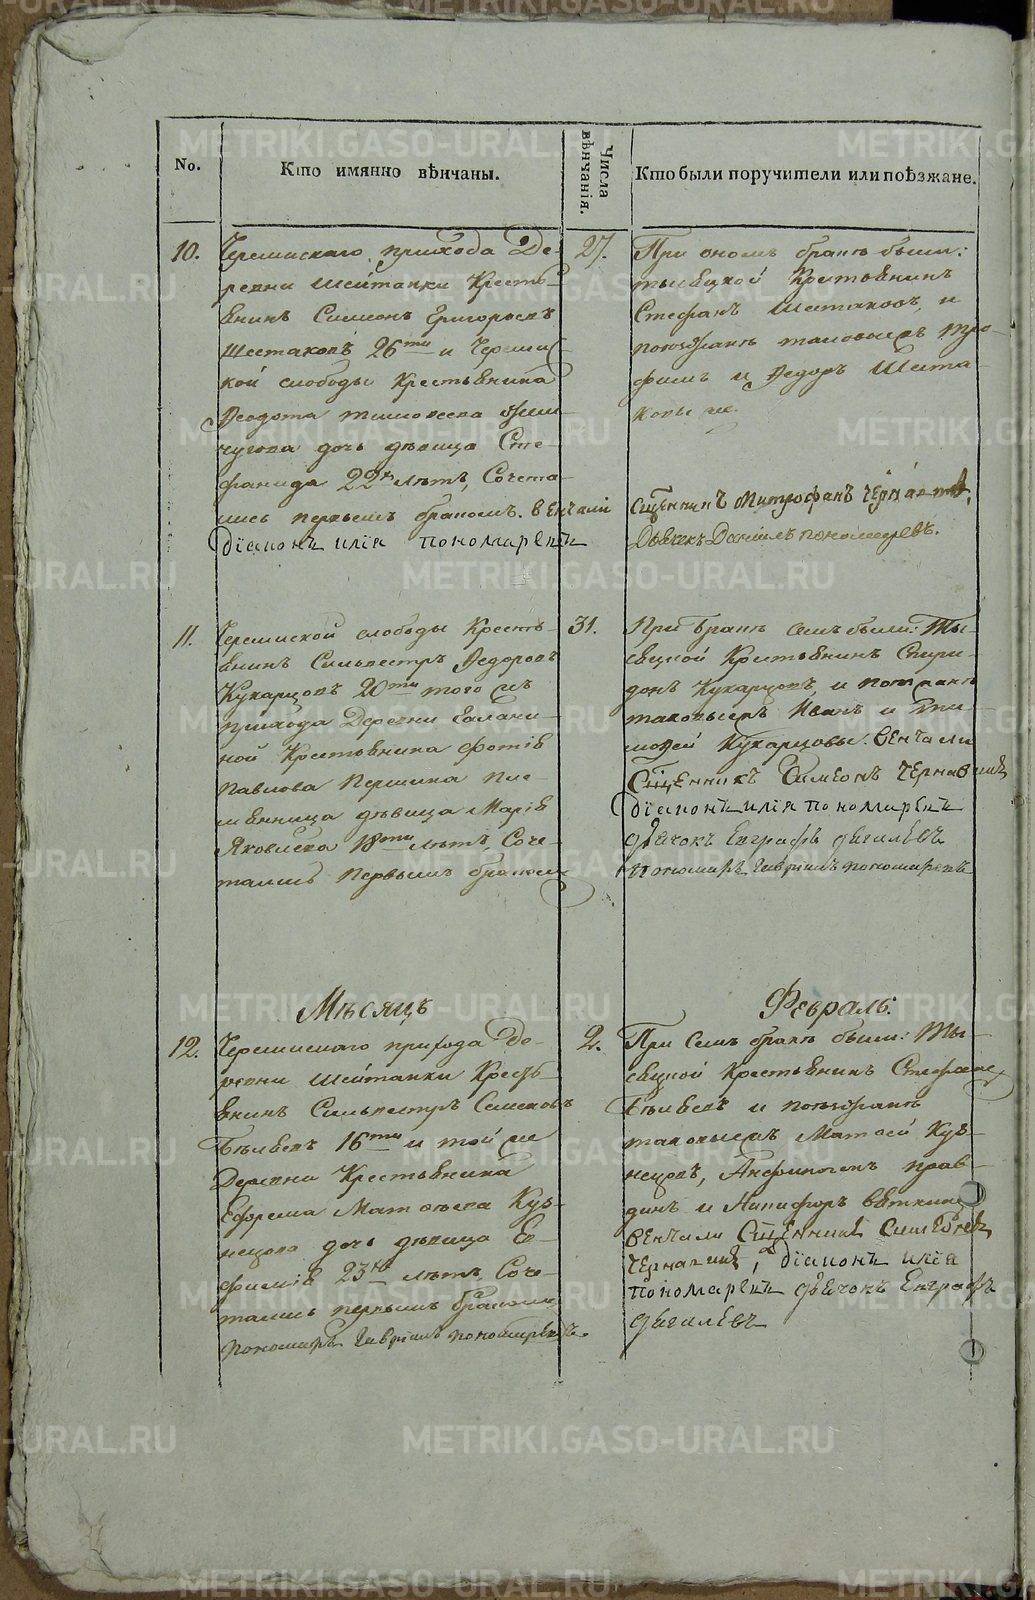 No.
Кто имянно вѣнчаны.
Числа вѣнчанія.
Кто были поручители или поѣзжане.
10.
Черемискаго прихода Де-
ревни Шейтанки Кресть-
янинъ Симеонъ Григорьевъ
Шестаковъ 26ти и Черемис-
кой слободы Крестьянина
Ѳедота Тимоѳеева
дочь дѣвица Сте-
фанида 22хъ лѣтъ, Сочета-
лись первымъ бракомъ. вѣнчали
діаконъ илія пономаревъ
27.
При ономъ бракѣ были:
тысяцкой Крестьянинъ
Стефанъ Шестаковъ, и
поѣзжанѣ таковыежъ Тро-
фимъ и Ѳедоръ Шеста-
ковы же.
Сщенникъ Митрофанъ
Дьячекъ Даніилъ пономаревъ.
11.
Черемиской слободы Кресть-
янинъ Сильвестръ Ѳедоровъ
Кухарцовъ 20ти того жъ
прихода Деревни
Крестьянина Фотія
Павлова Першина пле-
мянница дѣвица Марія
Яковлева 18ти лѣтъ, Соче-
тались первымъ бракомъ
31.
При бракѣ семъ были: Ты-
сяцкой Крестьянинъ Спири-
донъ Кухарцовъ, и поѣзжанѣ
таковыежъ Иванъ и Ти-
моѳей Кухарцовы. вѣнчали
Сщенникъ Симеонъ Чернавинъ
діаконъ илія пономаревъ
дьячокъ Евграфъ дягилевъ
пономарь Гавріилъ пономаревъ
Мѣсяцъ
Февраль.
12.
Черемискаго прихода Де-
ревни Шейтанки Кресть-
янинъ Сильвестръ Семеновъ
Бѣляевъ 16ти и той же
Деревни Крестьянина
Ефрема Матвѣева Куз-
нецова дочь дѣвица Ев-
фимія 23хъ лѣтъ, Соче-
тались первымъ бракомъ
пономарь Гавріилъ пономаревъ.
2.
При Семъ бракѣ были: Ты-
сяцкой Крестьянинъ Стефанъ
Бѣляевъ и поѣзжанѣ
таковыежъ Матвей Куз-
нецовъ,
и Никифоръ Вяткинъ
вѣнчали Сщенникъ Симеонъ
Чернавинъ, діаконъ илія
пономаревъ дьячокъ Евграфъ
дягилевъ
METRIKI.GASO-URAL.RU